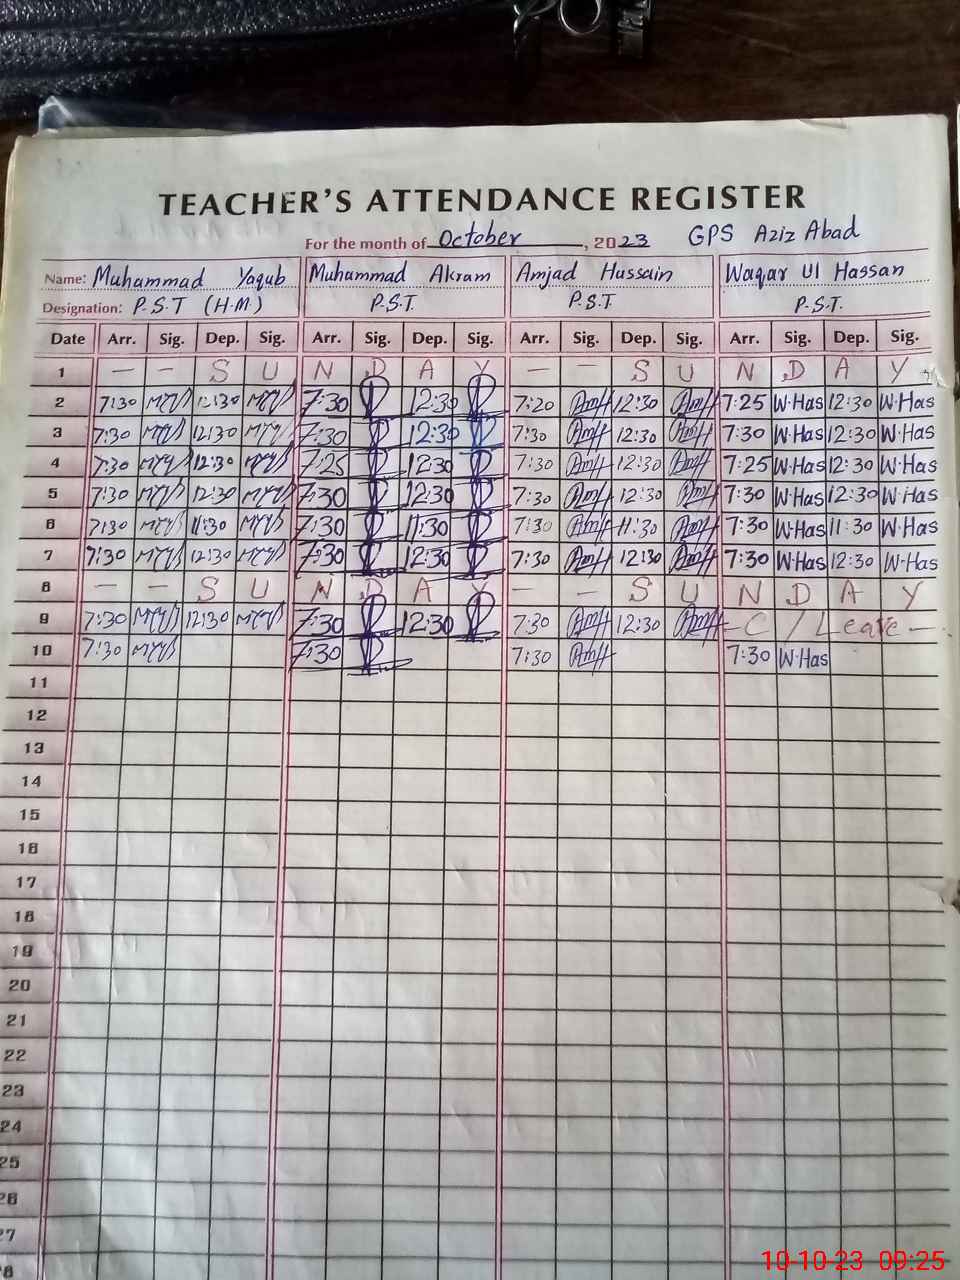 TEACHER'S ATTENDANCE REGISTER
For the month of October, 2023 GPS Aziz Abad
Name: Muhammad Yaqub Muhammad Akram Amjad Hussain Waqar Ul Hassan
Designation: P.S.T (H.M) P.S.T. P.S.T. P.S.T.
Date Arr. Sig. Dep. Sig. Arr. Sig. Dep. Sig. Arr. Sig. Dep. Sig. Arr. Sig. Dep. Sig.
1 — — S U N D A Y — — S U N D A Y
2 7:30 12:30 7:30 12:30 7:20 12:30 7:25 W.Has 12:30 W.Has
3 7:30 12:30 7:30 12:30 7:30 12:30 7:30 W.Has 12:30 W.Has
4 7:30 12:30 7:25 12:30 7:30 12:30 7:25 W.Has 12:30 W.Has
5 7:30 12:30 7:30 12:30 7:30 12:30 7:30 W.Has 12:30 W.Has
6 7:30 11:30 7:30 11:30 7:30 11:30 7:30 W.Has 11:30 W.Has
7 7:30 12:30 7:30 12:30 7:30 12:30 7:30 W.Has 12:30 W.Has
8 — — S U N D A Y — — S U N D A Y
9 7:30 12:30 7:30 12:30 7:30 12:30 — C / Leave —
10 7:30 7:30 7:30 7:30 W.Has
11
12
13
14
15
16
17
18
19
20
21
22
23
24
25
26
27
10-10-23 09:25